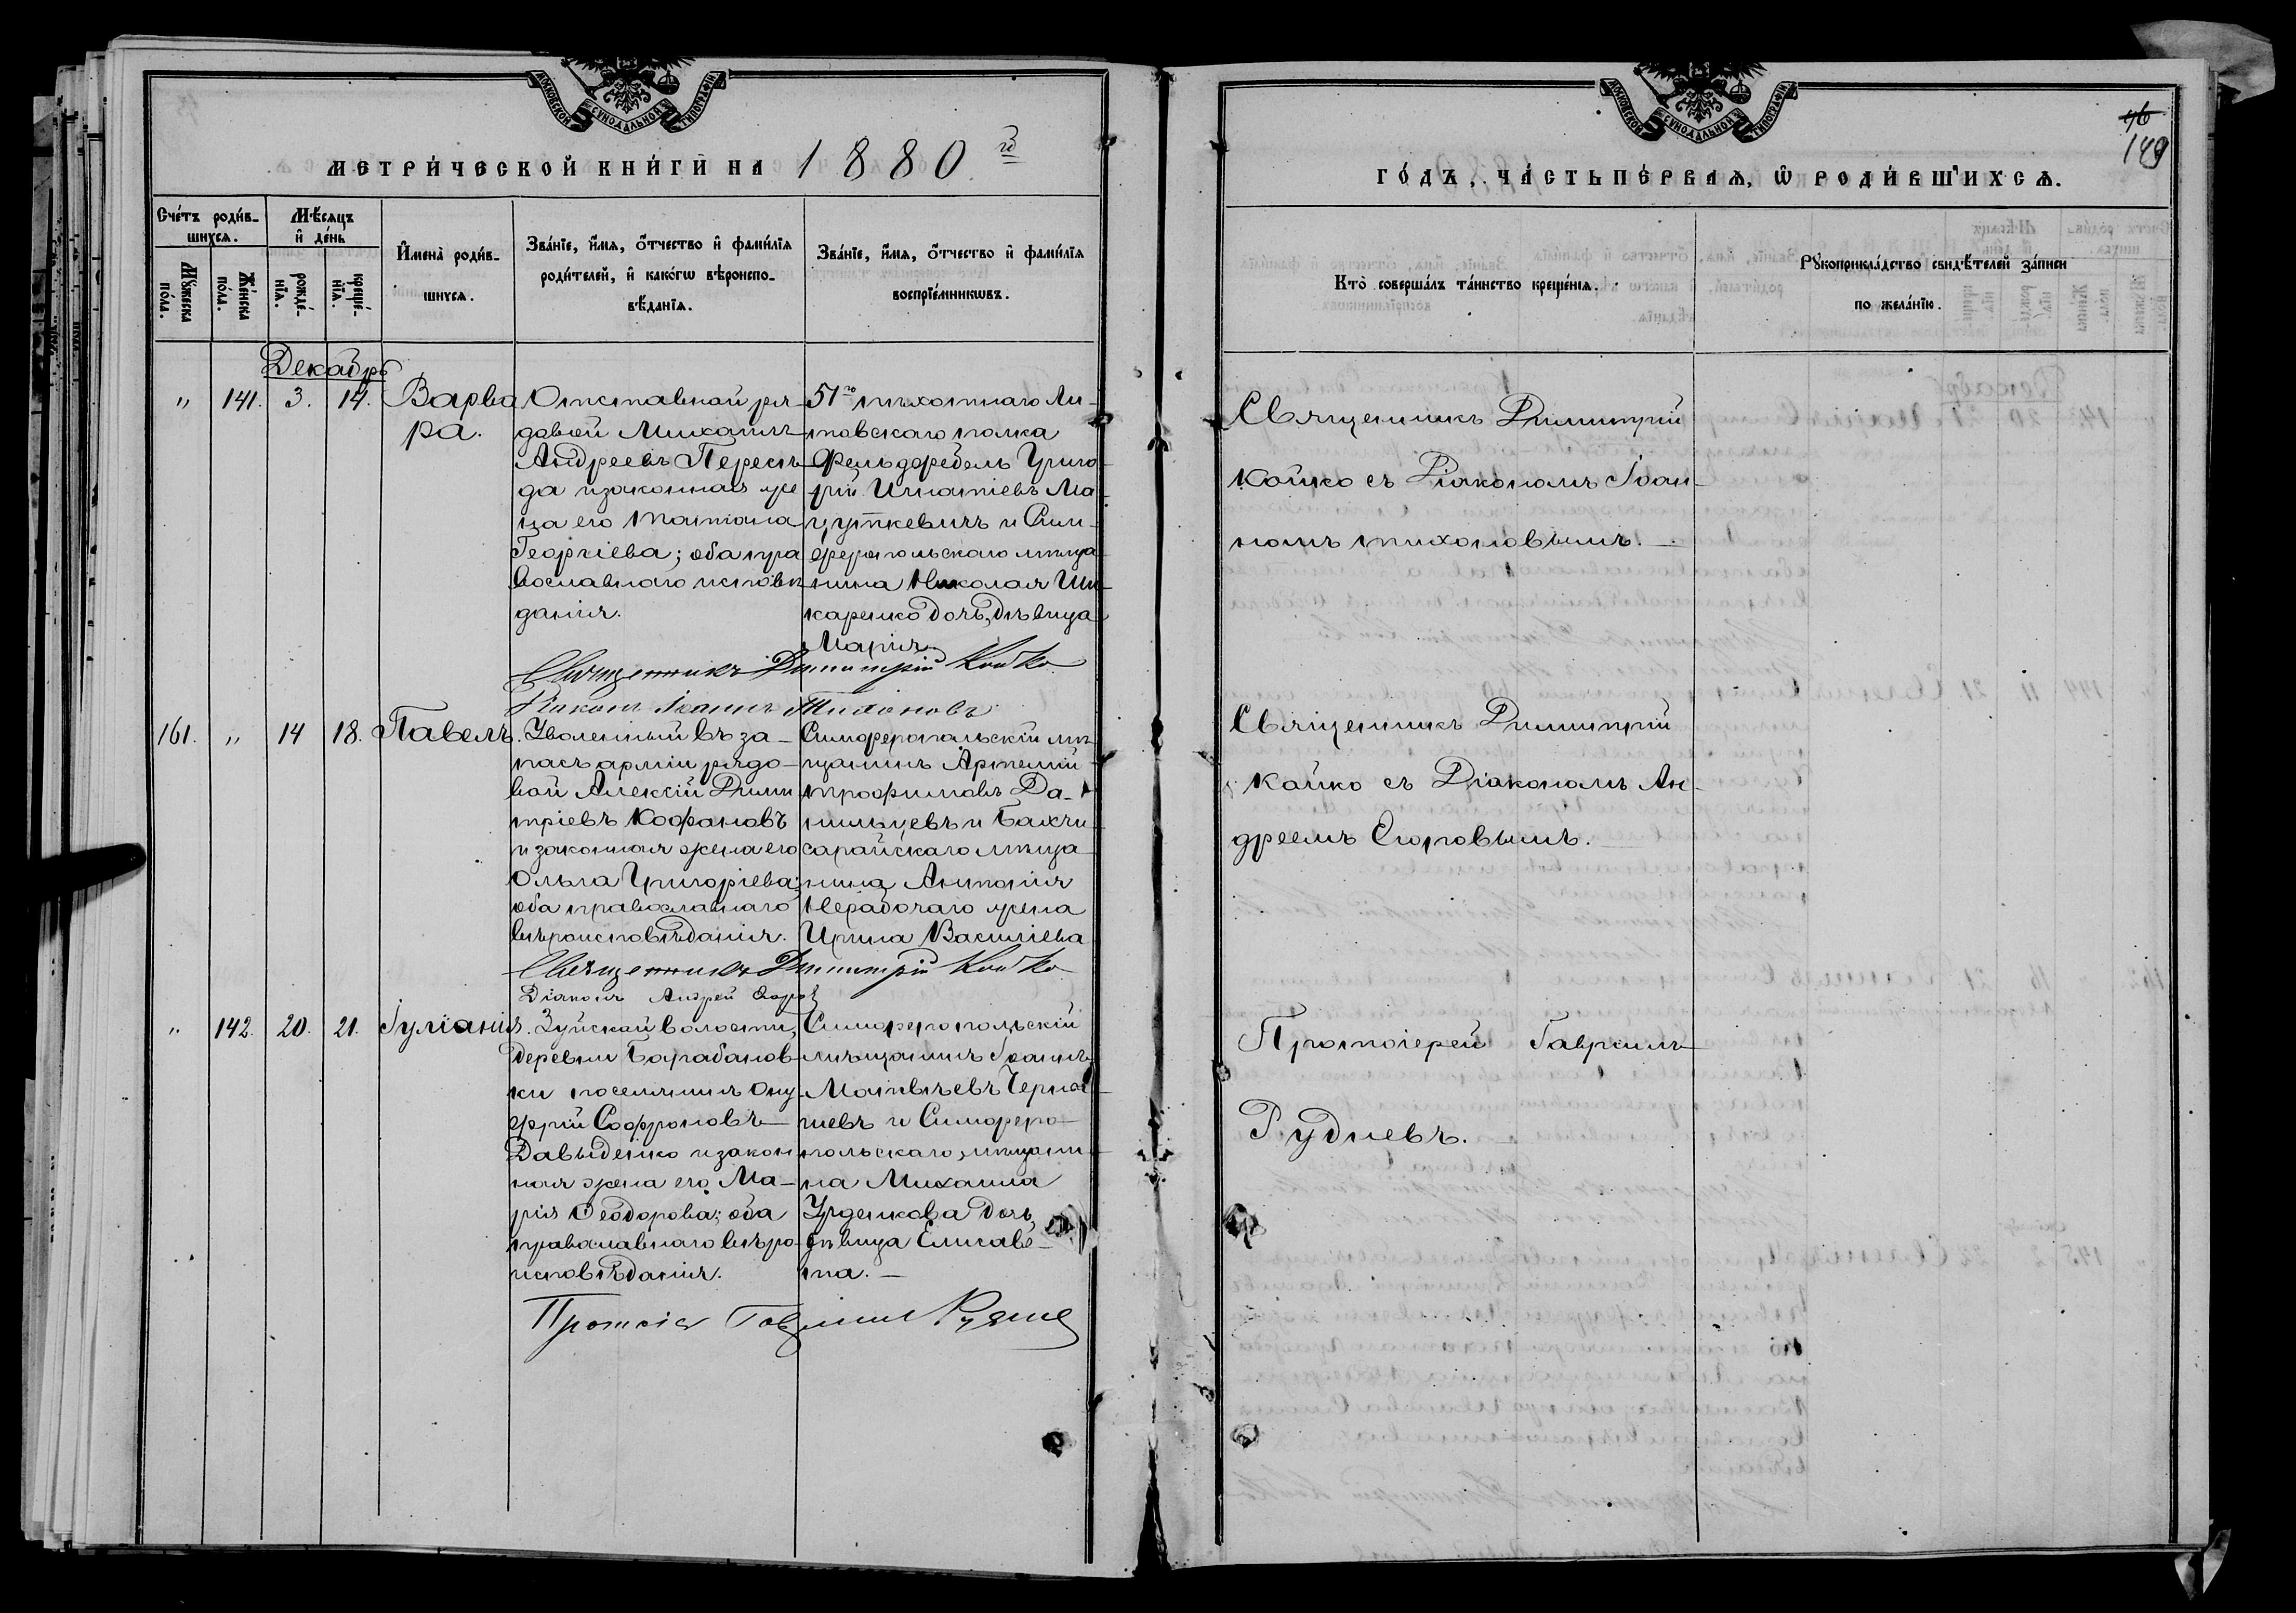 МОСКОВСКОЙ СѴНОДАЛЬНОЙ ТИПОГРАФІИ
МЕТРИ́ЧЕСКОЙ КНИ́ГИ НА 1880 го
Сче́тъ роди́в-
шихся.
Му́жеска по́ла.
Же́нска по́ла.
Мѣ́сяцъ
и҆ де́нь
рожде́-
нїѧ.
креще́-
нїѧ.
И҆мена̀ роди́в-
шихся.
Зва́нїе, и҆́мѧ, ѻ҆́тчество и҆ фами́лїѧ
роди́телей, и҆ како́гѡ вѣроиспо-
вѣ́данїѧ.
Зва́нїе, и҆́мѧ, ѻ҆́тчество и҆ фами́лїѧ
воспрїе́мникѡвъ.
Декабрь
" 141. 3. 14. Варва
ра.
Отставной ря-
довой Михаилъ
Андреевъ Пересъ-
да и законная же
на его Татіана
Георгіева; оба пра
вославнаго исповѣ
данія.
51го пѣхотнаго Ли-
товскаго полка
Фельдфебель Григо-
рій Игнатіевъ Ма-
цуткевичъ и Сим-
феропольскаго мѣща-
нина Николая Ши-
каренко дочь, дѣвица
Марія
Священникъ Димитрій Койко
Діаконъ Іоаннъ Тихоновъ
161. " 14 18. Павелъ.
Уволенный въ за-
пасъ арміи рядо-
вой Алексій Дими
тріевъ Кофановъ
и законная жена его
Ольга Григоріева;
оба православнаго
вѣроисповѣданія.
Симферопольскій мѣ-
щанинъ Артемій
Трофимовъ Да-
нильцевъ и Бахчи-
сарайскаго мѣща-
нина Антонія
Нерабочаго жена
Ирина Василіева
Священникъ Димитрій Койко
Діаконъ Андрей
" 142. 20. 21. Іуліанія.
Зуйской волости,
деревни Барабанов-
ки поселянинъ Ону-
фрій Софроновъ
Давыденко и закон
ная жена его Ма-
рія Ѳеодорова; оба
православнаго вѣро-
исповѣданія.
Симферопольскій
мѣщанинъ Іоаннъ
Матвѣевъ
и Симферо-
польскаго мѣщани-
на Михаила
дочь
дѣвица Елисаве-
та.
Протоіе Гавріилъ Руднев
46
149
МОСКОВСКОЙ СѴНОДАЛЬНОЙ ТИПОГРАФІИ
ГО́ДЪ, ЧА́СТЬ ПЕ́РВАѦ, Ѡ҆ РОДИ́ВШИХСѦ.
Кто̀ соверша́лъ та́инство креще́нїѧ.
Рꙋкоприкла́дство свидѣ́телей за́писи
по жела́нїю.
Священникъ Димитрій
Койко съ Діакономъ Іоан-
номъ Тихоновымъ.
Священникъ Димитрій
Койко съ Діакономъ Ан-
дреемъ
Протоіерей Гавріилъ
Рудневъ.